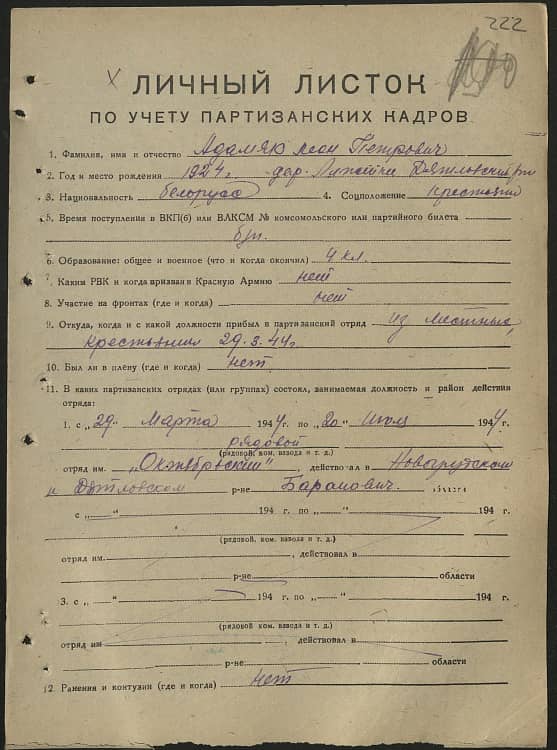 222
ЛИЧНЫЙ ЛИСТОК
ПО УЧЕТУ ПАРТИЗАНСКИХ КАДРОВ
1. Фамилия, имя и отчество Адамяк Леон Петрович
2. Год и место рождения 1924 г. дер. Дятловский р-н
3. Национальность белорусс 4. Соцположение крестьянин
5. Время поступления в ВКП(б) или ВЛКСМ № комсомольского или партийного билета
б/п.
6. Образование: общее и военное (что и когда окончил) 4 кл.
7. Каким РВК и когда призван в Красную Армию нет
8. Участие на фронтах (где и когда) нет
9. Откуда, когда и с какой должности прибыл в партизанский отряд из местных
крестьянин 29.3.44 г.
10. Был ли в плену (где и когда) нет.
11. В каких партизанских отрядах (или группах) состоял, занимаемая должность и район действия
отряда:
1. с „29" Марта 1944 г. по „20" Июля 1944 г.
рядовой
(рядовой, ком. взвода и т. д.)
отряд им. „Октябрьский", действовал в Новогрудском
и Дятловском р-не Баранович. области
с „ " 194 г. по „ " 194 г.
(рядовой, ком. взвода и т. д.)
отряд им. , действовал в
р-не области
3. с „ " 194 г. по „ " 194 г.
(рядовой ком. взвода и т. д.)
отряд им , действовал в
р-не области
12. Ранения и контузии (где и когда) нет